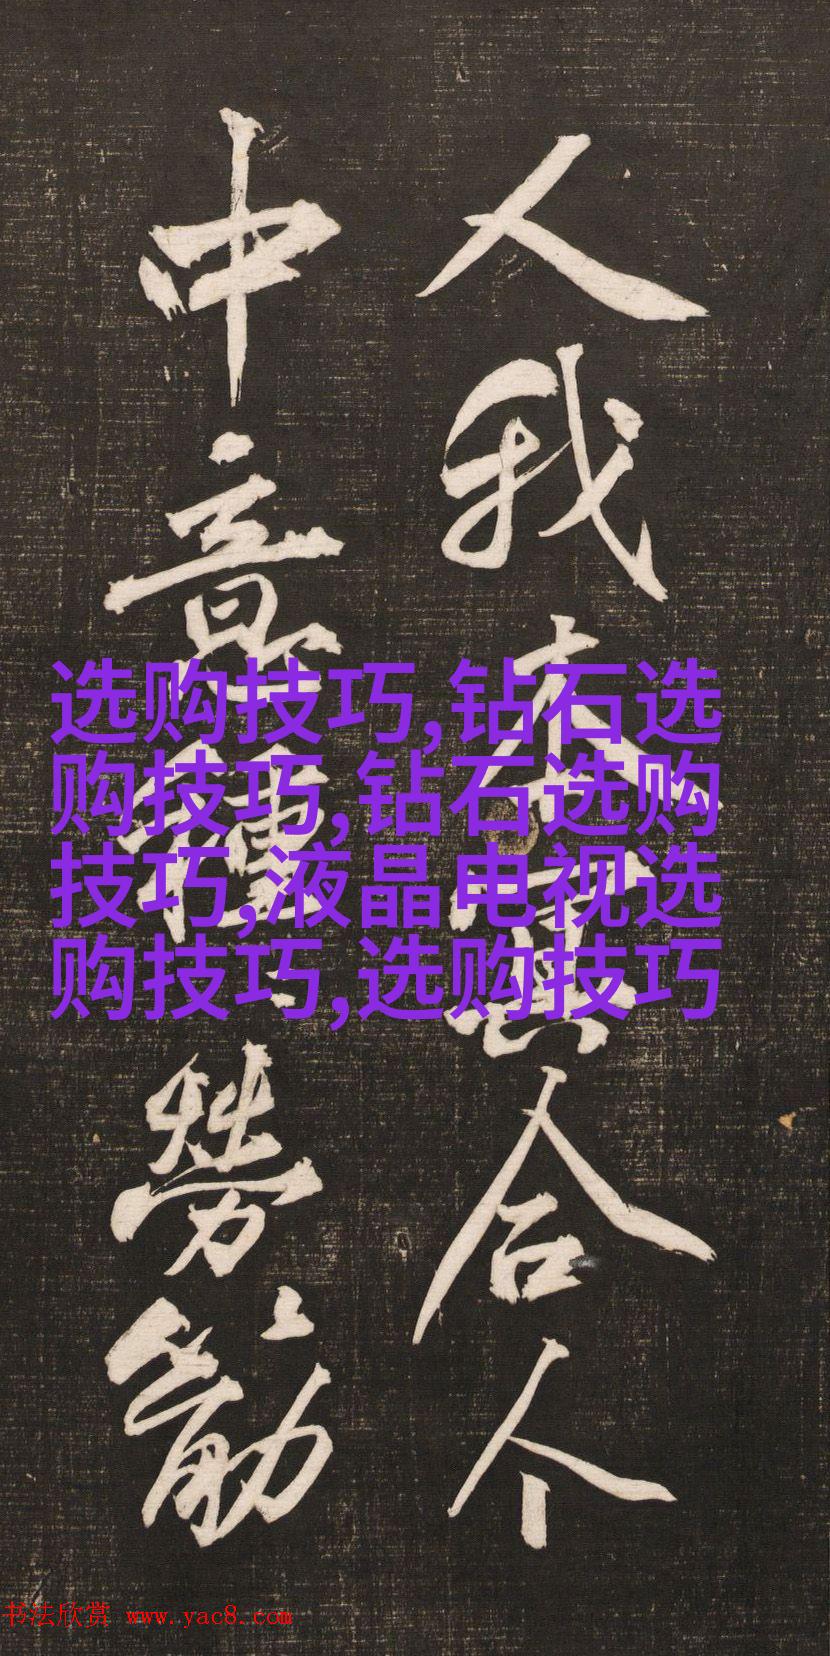 人我本寘合个
中意種种劳筋
选购技巧,钻石选
购技巧,钻石选购
技巧,液晶电视选
购技巧,选购技巧
书法欣赏 www.yac8.com